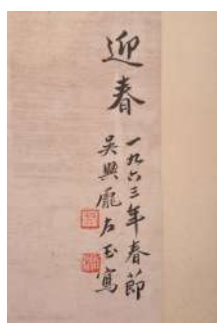 迎春
一九六三年春節
吳興龐左玉寫